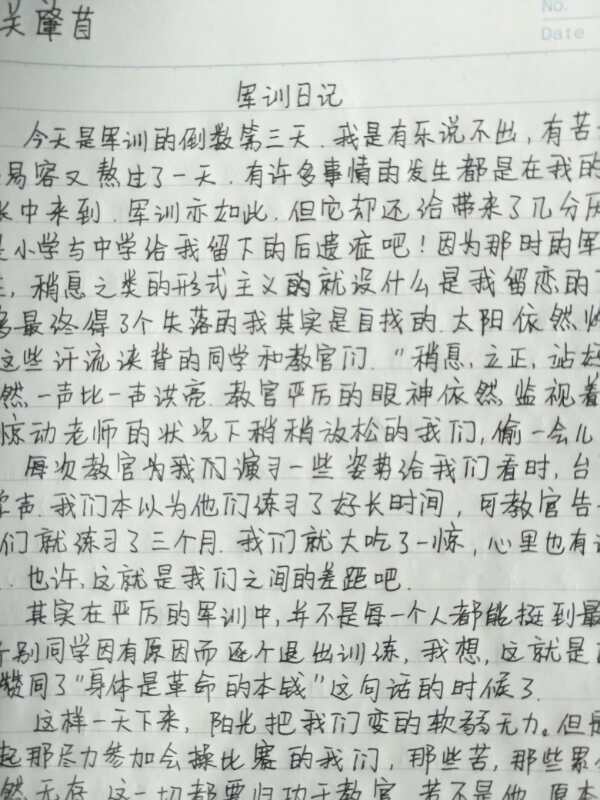 关肇苜
No.
Date
军训日记
今天是军训的倒数第三天.我是有乐说不出,有苦
易容又熬过了一天.有许多事情的发生都是在我的
中来到.军训亦如此.但它却还给带来了几分
是小学与中学给我留下的后遗症吧!因为那时的军
,稍息之类的形式主义的就没什么是我留恋的
最终得了个失落的我其实是自找的.太阳依然
这些汗流浃背的同学和教官们."稍息,立正,站
然一声比一声洪亮.教官严厉的眼神依然监视着
惊动老师的状况下稍稍放松的我们,偷一会儿
每次教官为我们演习一些姿势给我们看时,台
声.我们本以为他们练习了好长时间,可教官告
们就练习了三个月.我们就大吃了一惊,心里也有
.也许,这就是我们之间的差距吧.
其实在严厉的军训中,并不是每一个人都能挺到最
个别同学因有原因而逐个退出训练,我想,这就是
赞同了"身体是革命的本钱"这句话的时候了.
这样一天下来,阳光把我们变的软弱无力。但
起那尽力参加会操比赛的我们,那些苦,那些累
然无存.这一切都要归功于教官.若不是他,原本